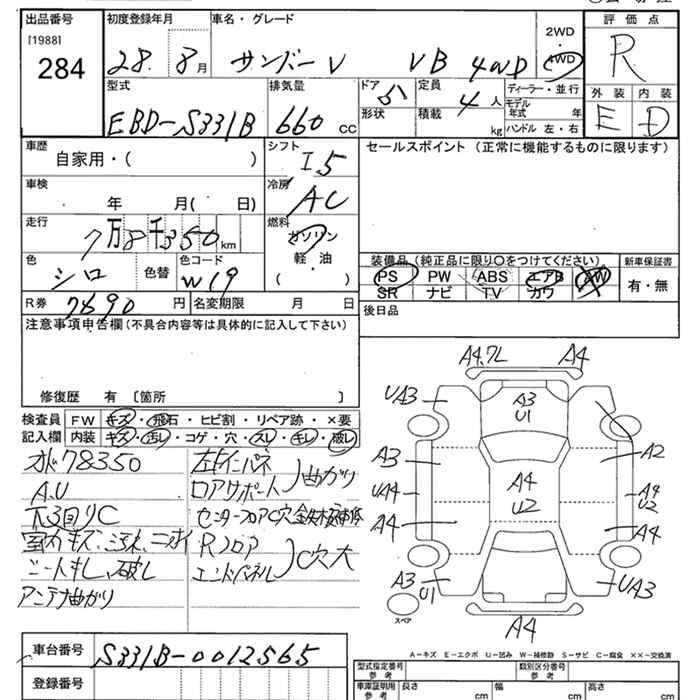 出品番号 初度登録年月 車名・グレード 2WD 評価点
[1988] 284 28. 8月 サンバーV VB 4WD 4WD R
型式 排気量 ドア 5 定員 4人 ディーラー・並行 外装 内装
EBD-S331B 660 CC 形状 積載 kg モデル年式 年 E D
ハンドル 左・右
車歴 シフト セールスポイント (正常に機能するものに限ります)
自家用・( ) I5
車検 冷房
年 月( 日) AC
走行 燃料
7万8千350km ガソリン
色 色替 色コード 軽・油
シロ W19 ( )
装備品 (純正品に限り○をつけてください) 新車保証書
PS PW ABS エアB AW 有・無
SR ナビ TV カワ
R券 7890円 名変期限 月 日 後日品
注意事項申告欄 (不具合内容等は具体的に記入して下さい)
修復歴 有 〔箇所 〕
検査員 FW キズ・飛石・ヒビ割・リペア跡・×要
記入欄 内装 キズ・汚し・コゲ・穴・スレ・キレ・破レ
オド78350
A.U
下3回りC
室内キズ・ヨゴレ、ニオイ
シートキレ、破レ
アンテナ曲がり
左インパネ
ロアサポート 曲がり
センターフロアC穴
Rフロア
エンドパネル C穴大
A4,7L A4
UA3 A3 U1
A3 A2
UA4 A4 U2 A9 U2
A4 A4
A3 U1 UA3
スペア A4
A−キズ E−エクボ U−凹み W−補修跡 S−サビ C−腐食 ××−交換済
車台番号 S331B-0012565
登録番号
型式指定番号 参考 類別区分番号 参考
車庫証明用 参考 長さ cm 幅 cm 高さ cm